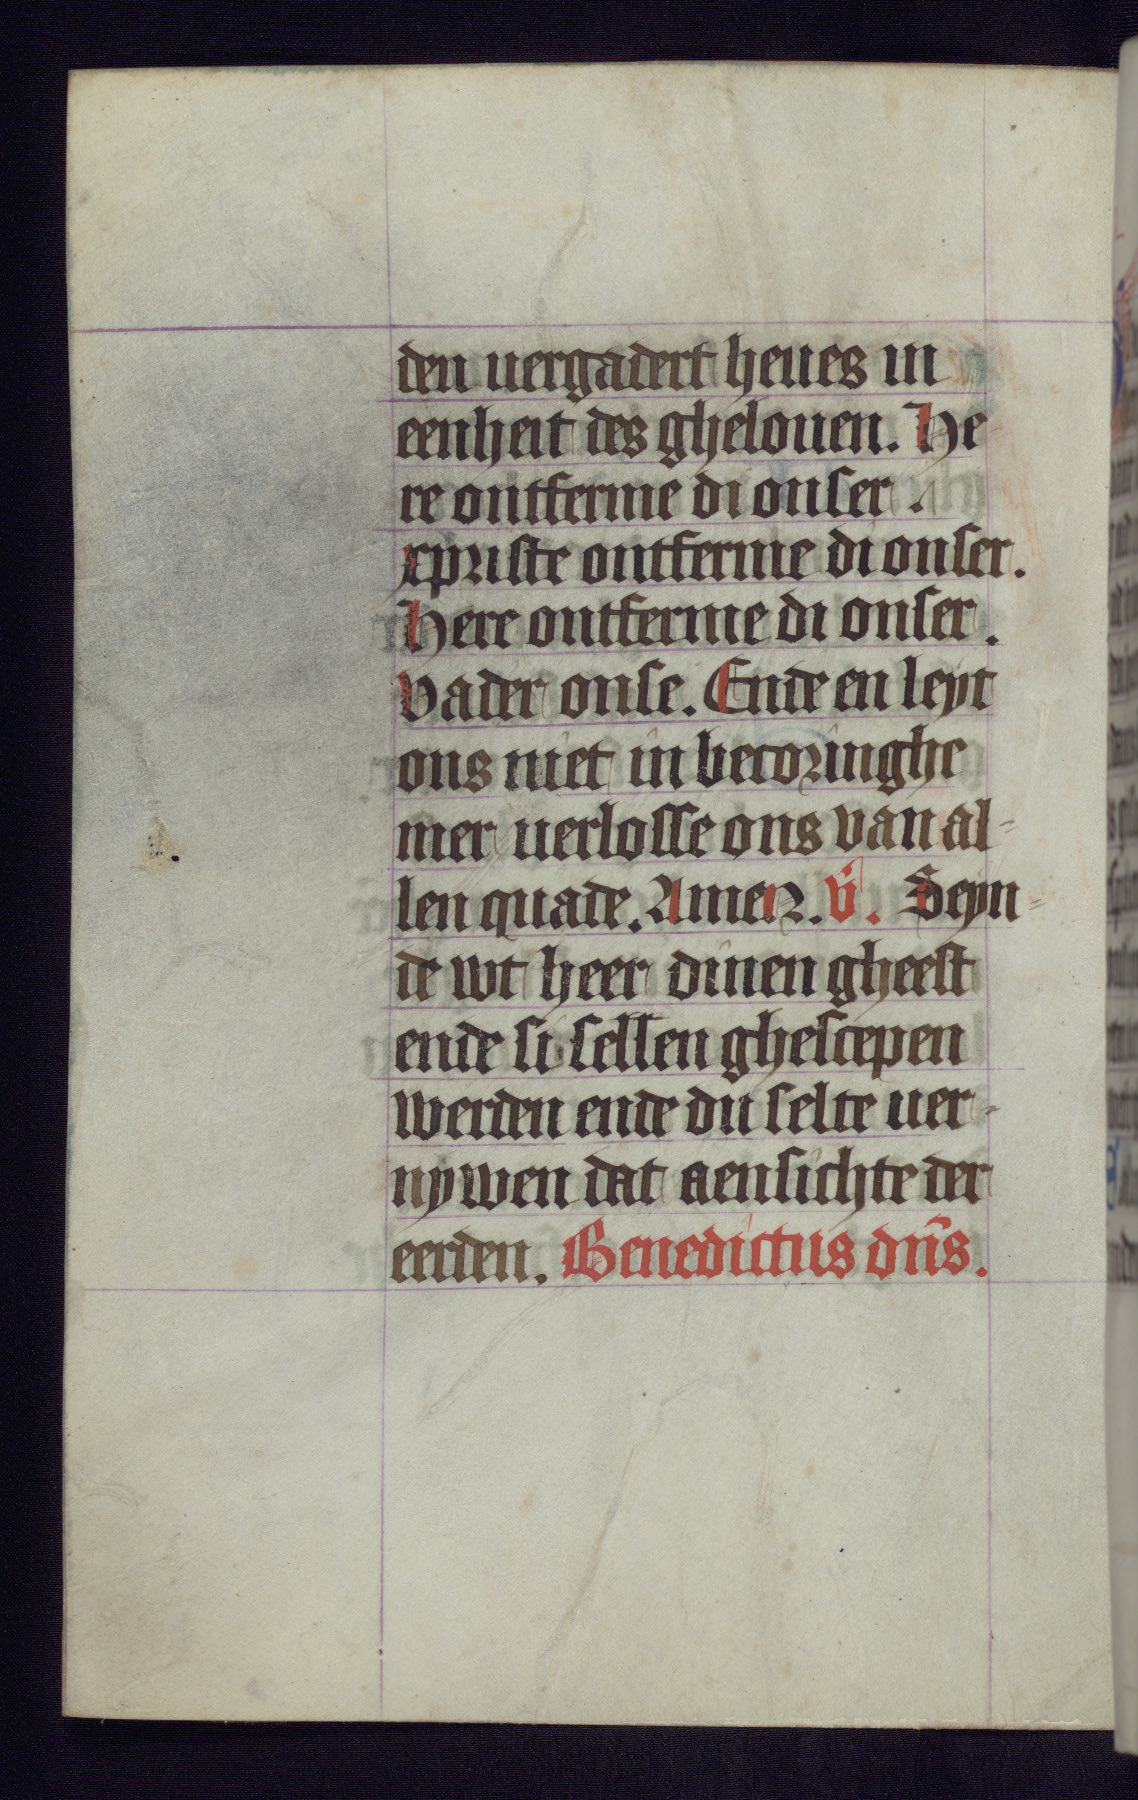 den uergadert heues in
eenheit des ghelouen. He
re ontferme di onser.
xpriste ontferme di onser.
Here ontferme di onser.
Vader onse. Ende en leyt
ons niet in becoringhe
mer uerlosse ons van al-
len quade. Amen. v̓. Seyn-
de wt heer dinen gheest
ende si sellen ghescepen
werden ende du selte uer-
nywen dat aensichte der
eerden. Benedictus dn̄s.